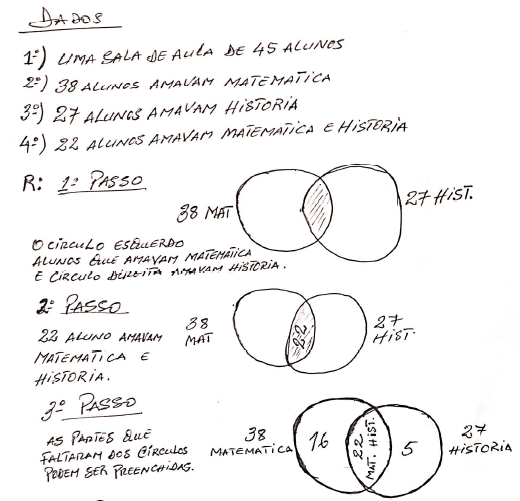 DADOS
1º) UMA SALA DE AULA DE 45 ALUNOS
2º) 38 ALUNOS AMAVAM MATEMATICA
3º) 27 ALUNOS AMAVAM HISTORIA
4º) 22 ALUNOS AMAVAM MATEMATICA E HISTORIA
R: 1º PASSO
38 MAT
27 HIST.
O CÍRCULO ESQUERDO
ALUNOS QUE AMAVAM MATEMÁTICA
E CÍRCULO DIREITA AMAVAM HISTORIA.
2º PASSO
22 ALUNO AMAVAM
MATEMATICA E
HISTORIA.
38
MAT
22
27
HIST.
3º PASSO
AS PARTES QUE
FALTARAM DOS CÍRCULOS
PODEM SER PREENCHIDAS.
38
MATEMATICA
16
22
MAT. HIST.
5
27
HISTORIA